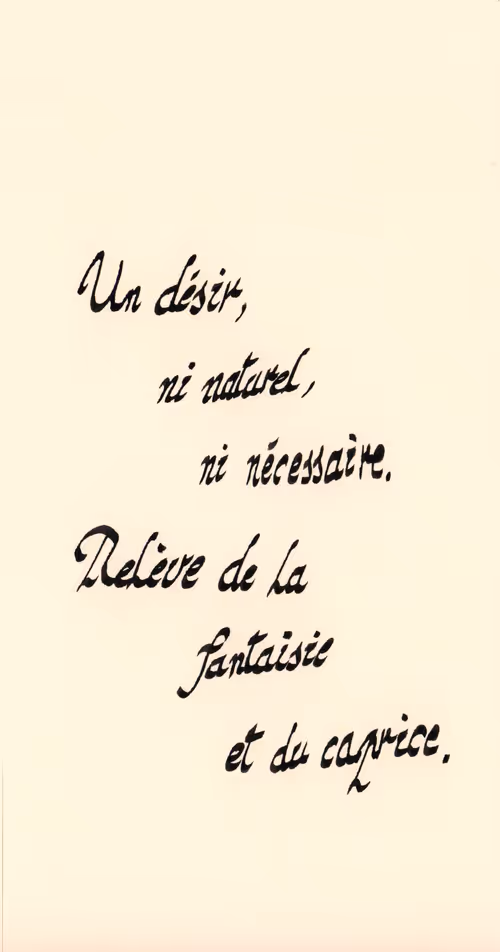 Un désir,
ni naturel,
ni nécessaire.
Relève de la
fantaisie
et du caprice.